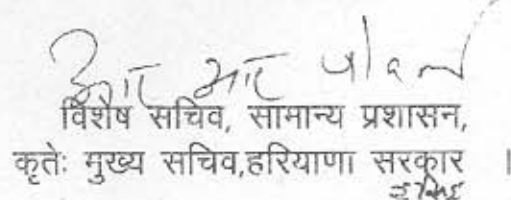 आर आर
विशेष सचिव, सामान्य प्रशासन,
कृतेः मुख्य सचिव,हरियाणा सरकार ।